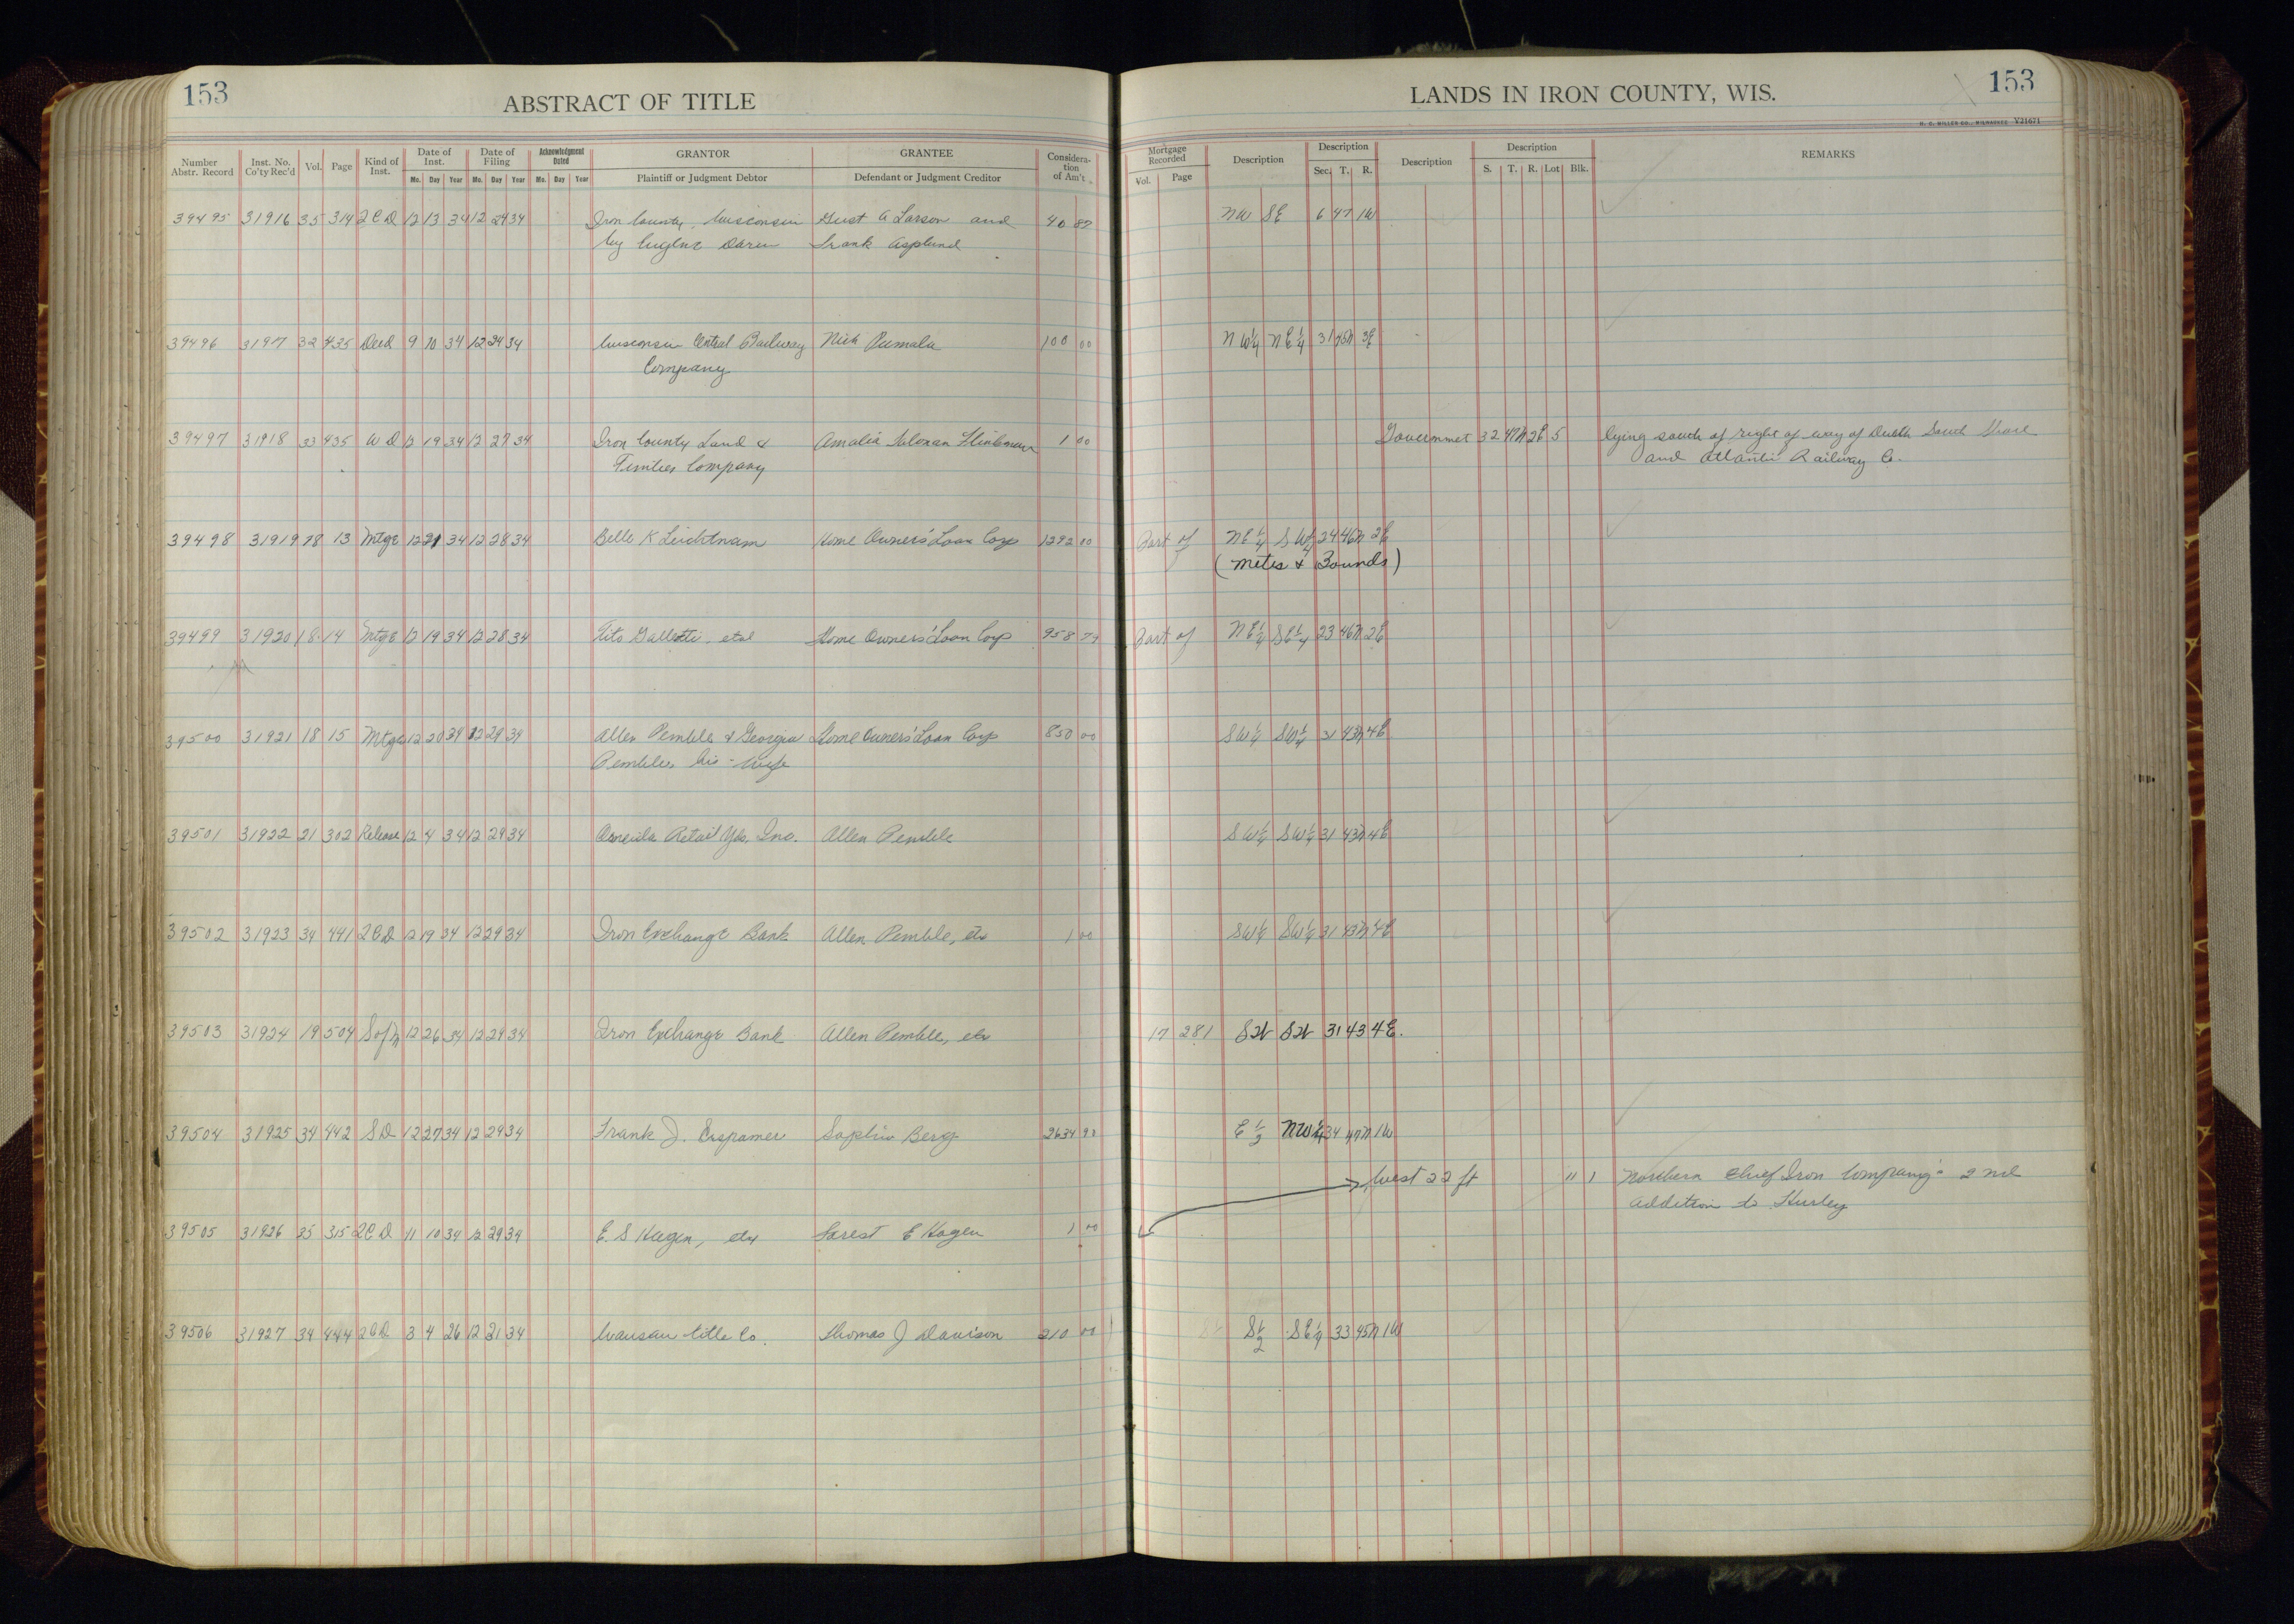 153
ABSTRACT OF TITLE
LANDS IN IRON COUNTY, WIS.
153
H. C. MILLER CO., MILWAUKEE V21671
Number Abstr. Record | Inst. No. Co'ty Rec'd | Vol. | Page | Kind of Inst. | Date of Inst. Mo. Day Year | Date of Filing Mo. Day Year | Acknowledgment Dated Mo. Day Year | GRANTOR Plaintiff or Judgment Debtor | GRANTEE Defendant or Judgment Creditor | Consideration of Am't | Mortgage Recorded Vol. Page | Description | Description Sec. T. R. | Description | Description S. T. R. Lot Blk. | REMARKS
39495 31916 35 314 2CD 12 13 34 12 24 34 Iron County, Wisconsin Gust A Larson and 40 87 NW SE 6 47 1W
by Eugene Darin Frank Asplund
39496 31917 32 435 Deed 9 10 34 12 24 34 Wisconsin Central Railway Nick Pumala 100 00 NW¼ NE¼ 31 45N 3E
Company
39497 31918 33 435 WD 12 19 34 12 27 34 Iron County Land & Amalia 1 00 Governmet 32 47N 2E 5 lying south of right of way of Duluth South Shore
Company and Atlantic Railway Co.
39498 31919 18 13 Mtge 12 21 34 12 28 34 Belle K Leichtnam Home Owners' Loan Corp 1292 00 Part of NE¼ SW¼ 24 46N 2E
(Metes & Bounds)
39499 31920 18 14 Mtge 12 19 34 12 28 34 Tito Galletti, etal Home Owners' Loan Corp 958 79 Part of NE¼ SE¼ 23 46N 2E
39500 31921 18 15 Mtge 12 20 34 12 29 34 Allen Pemble & Georgia Home Owners' Loan Corp 850 00 SW¼ SW¼ 31 43N 4E
Pemble, his wife
39501 31922 21 302 Release 12 4 34 12 29 34 Oneida Retail Yds, Inc. Allen Pemble SW¼ SW¼ 31 43N 4E
39502 31923 34 441 2CD 12 19 34 12 29 34 Iron Exchange Bank Allen Pemble, etx 1 00 SW¼ SW¼ 31 43N 4E
39503 31924 19 504 S of M 12 26 34 12 29 34 Iron Exchange Bank Allen Pemble, etx 17 281 SW SW 31 43 4E.
39504 31925 34 442 SD 12 27 34 12 29 34 Frank J. Erspamer Sophia Berg 2634 90 E½ NW¼ 34 47N 1W
West 22 ft 11 1 Northern Chief Iron Company's 2nd
Addition to Hurley
39505 31926 35 315 2CD 11 10 34 12 29 34 E. S Hagen, etx Forest E Hagen 1 00
39506 31927 34 444 2CD 3 4 26 12 31 34 Wausau Title Co. Thomas J Davison 210 00 S½ SE¼ 33 45N 1W